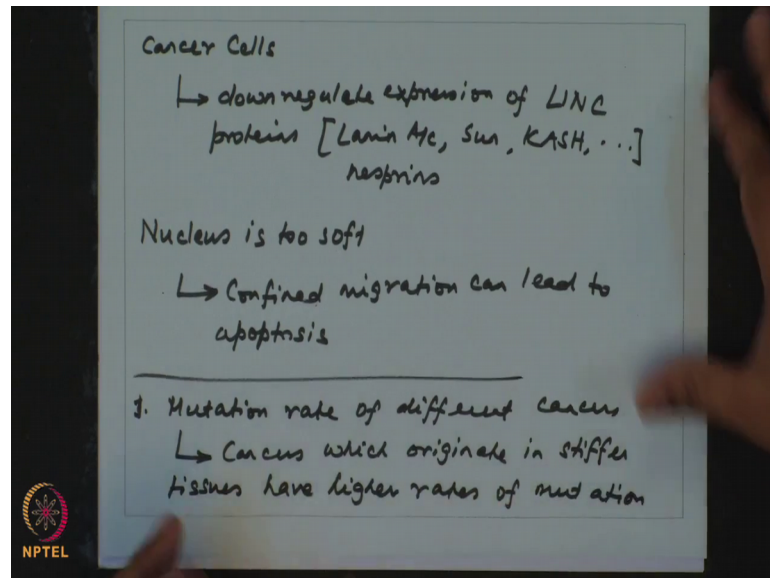 Cancer Cells
↳ downregulate expression of LINC
proteins [Lamin A/c, Sun, KASH, ...]
nesprins
Nucleus is too soft
↳ Confined migration can lead to
apoptosis
1. Mutation rate of different cancers
↳ Cancers which originate in stiffer
tissues have higher rates of mutation
NPTEL